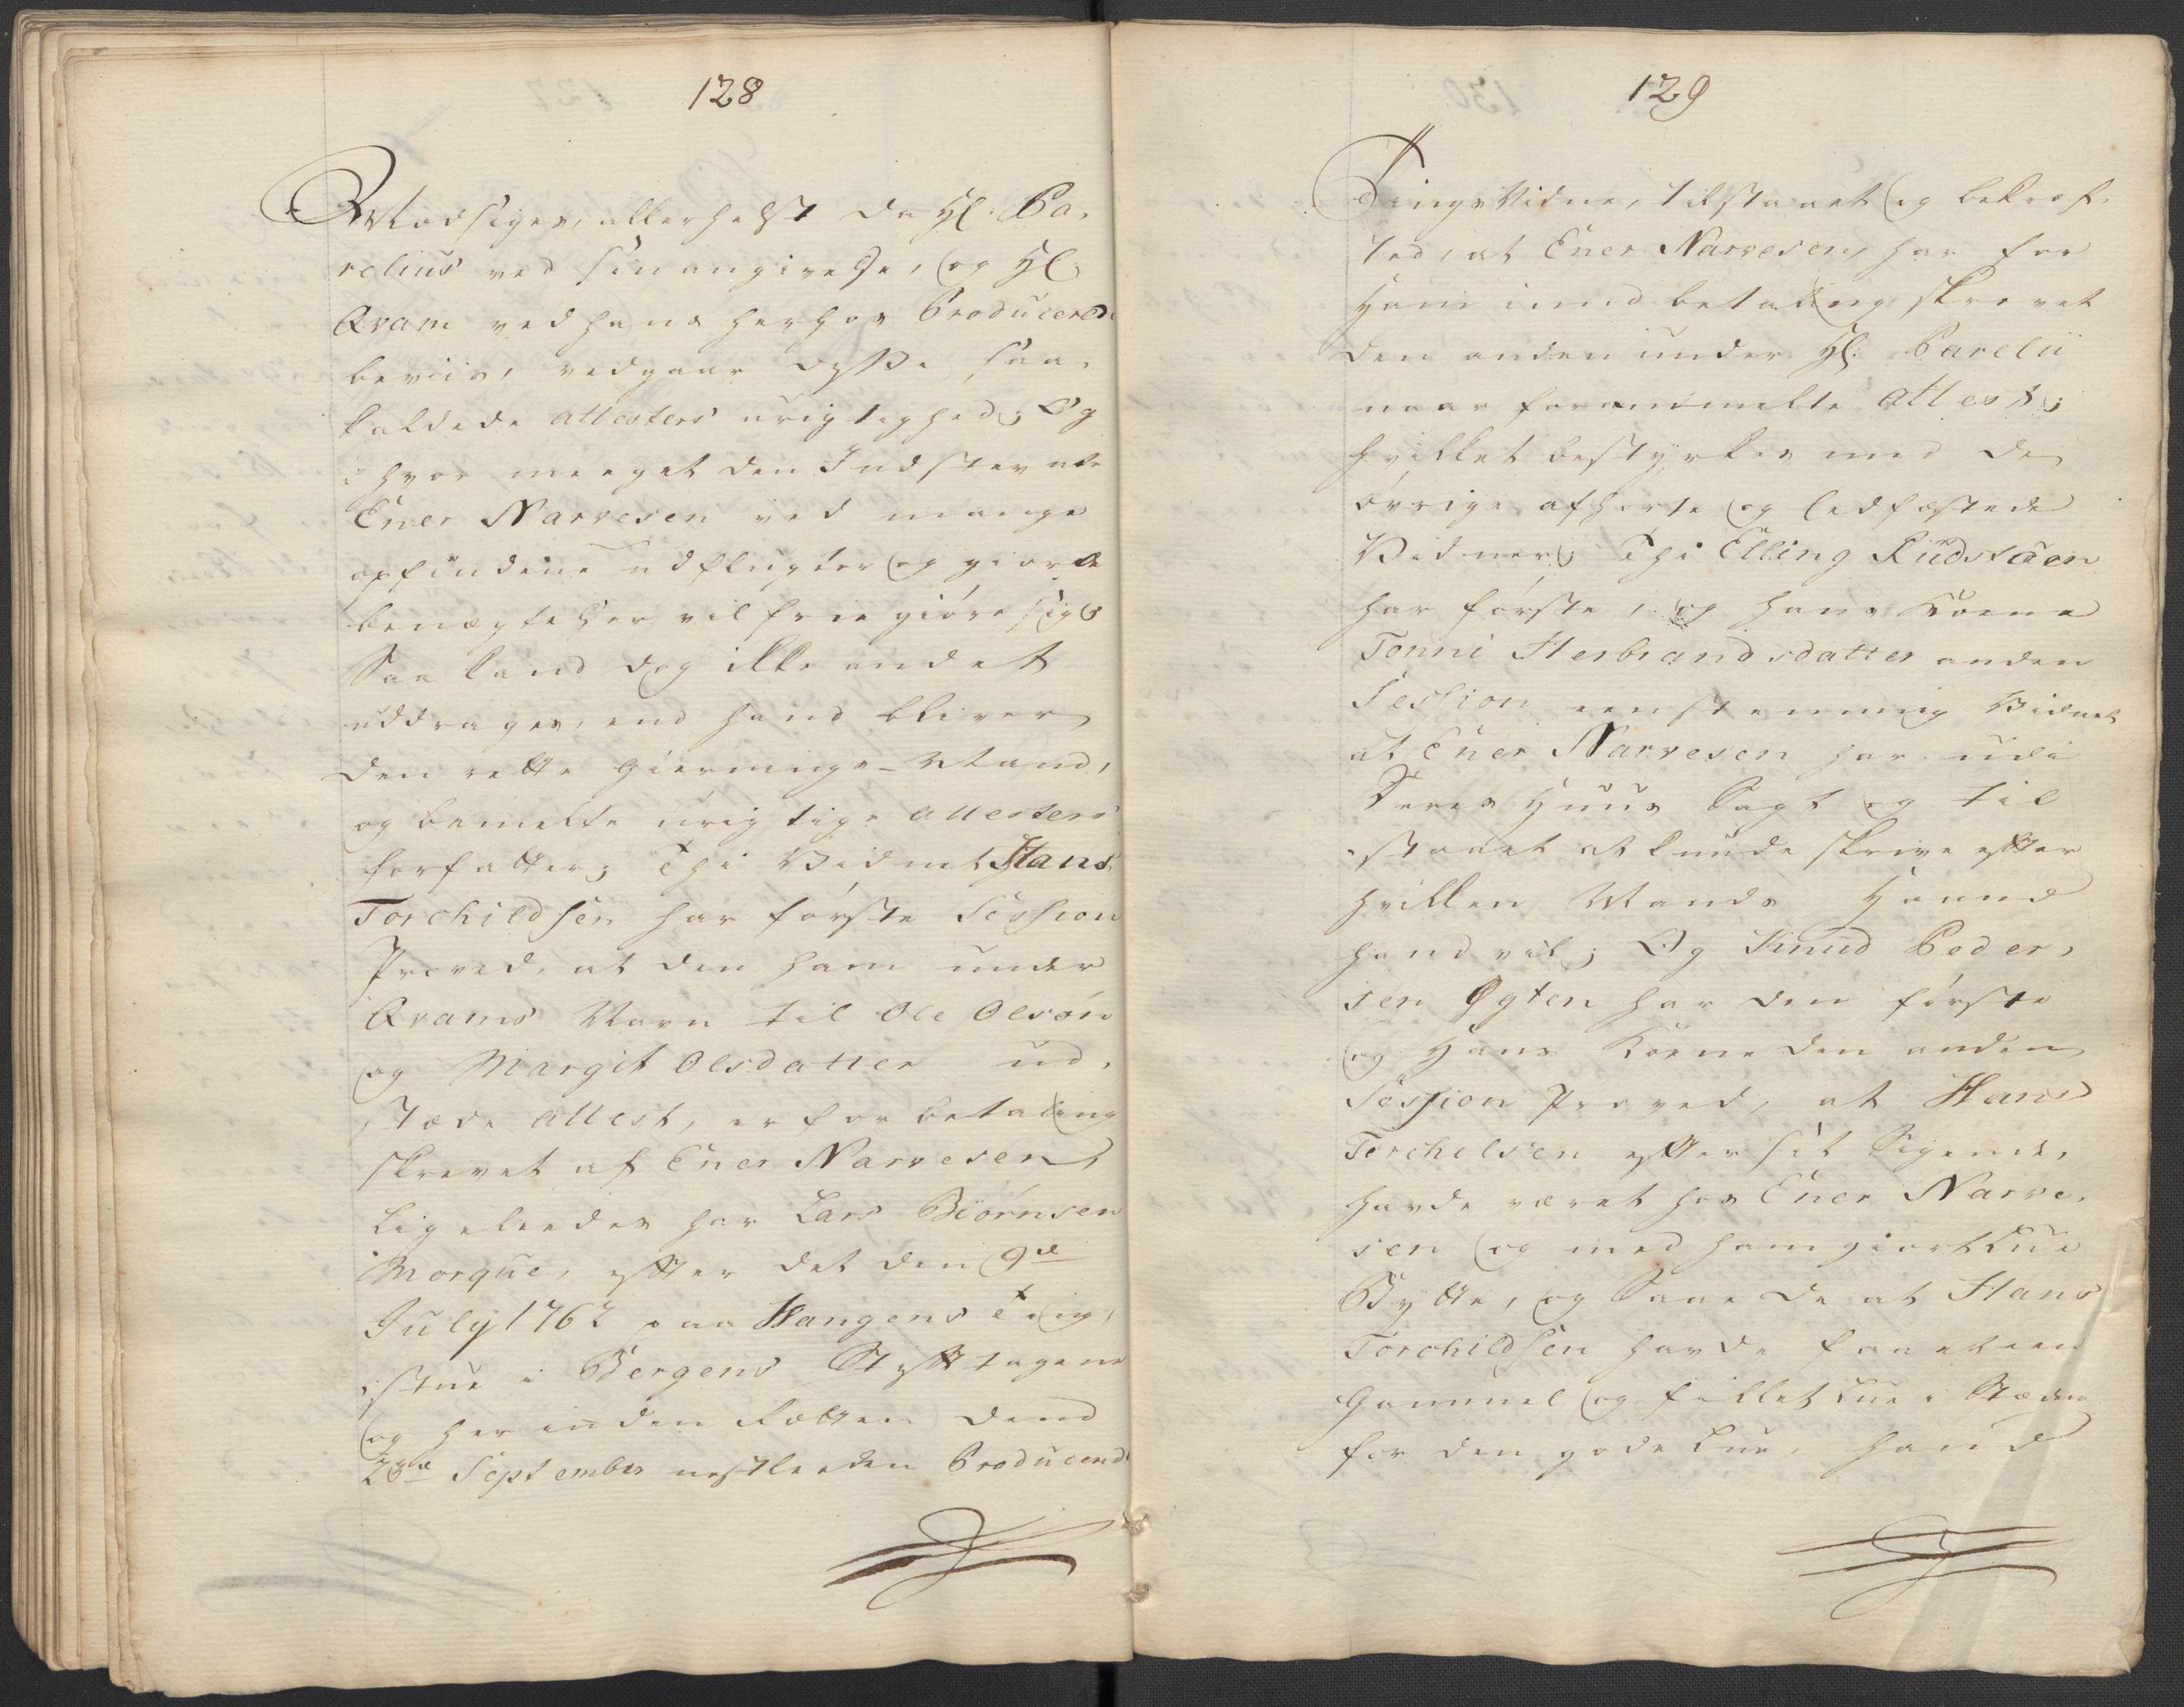 128
Modsiges, allerhelst da Hl. Pa-
relius ved sin angivelse, og Hl
Qvam ved hans herhos Producered
beviis, vedgaar disse saa-
kaldede attesters urigtighed; Og
hvor meeget den Indstevnte
Ener Narvesen ved mange
opfindene udflugter og giorde
benægtelser vil frie giøre sig
Saa kand dog ikke andet
uddrages, end hand bliver
den rette Giernings-Mand,
og bemelte urigtige attesters
forfatter; Thi Vidnet Hans
Torchildsen har første Session
Proved, at den ham under
Qvams Navn til Ole Olsøn
og Margit Olsdatter ud-
stæde attest, er for betaling
skrevet af Ener Narvesen,
Ligeleedes har Lars Biørnsen
Morque, efter det den 9de
July 1762 paa Hangens Ting-
stue i Bergens Stift tagene
og her inden Rætten dend
23de September nestleeden Producerede
129
Tings Vidne, tilstaaet og bekræf-
ted, at Ener Narvesen har for
Ham imod betaling skrevet
den anden under Hl. Parelii
naun forommelte attest;
hvilket bestyrkes med de
øvrige afhørte og ledfæstede
Vidner; Thi Elling Rudstøen
har første, og hans Kone
Tonni Herbrandsdatter anden
Session eenstemmig Vidnet
at Ener Narvesen har udi
Deres Huus Sagt og til
staaet at kunde skrive efter
hvilken Mands Haand
hand vil; Og Knud Peder-
sen Øgten har den første
og Hans Kone den anden
Session Proved, at Hans
Torchelsen efter sit Sigende,
havde været hos Ener Narve-
sen og med ham giort Lue
Bytte, og Saae de at Hans
Torchildsen havde faaet een
Gammel og fillet Lue i Stæden
for den gode Lue, hand